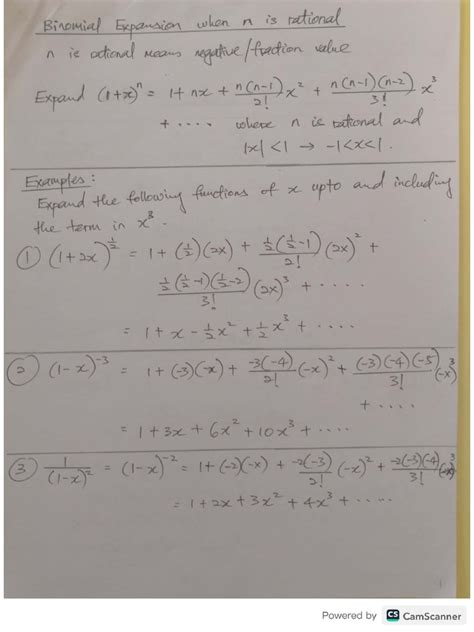 Binomial Expansion when n is rational
n is rational means negative/fraction value
Expand (1+x)^n = 1 + nx + n(n-1)/2! x^2 + n(n-1)(n-2)/3! x^3
+ .... where n is rational and
|x| < 1 → -1<x<1.
Examples:
Expand the following functions of x upto and including
the term in x^3.
① (1+2x)^(1/2) = 1 + (1/2)(2x) + 1/2(1/2-1)/2! (2x)^2 +
1/2(1/2-1)(1/2-2)/3! (2x)^3 + ....
= 1 + x - 1/2x^2 + 1/2x^3 + ....
② (1-x)^-3 = 1 + (-3)(-x) + -3(-4)/2! (-x)^2 + (-3)(-4)(-5)/3! (-x)^3
+ ....
= 1 + 3x + 6x^2 + 10x^3 + ....
③ 1/(1-x)^2 = (1-x)^-2 = 1 + (-2)(-x) + -2(-3)/2! (-x)^2 + -2(-3)(-4)/3! (-x)^3
= 1 + 2x + 3x^2 + 4x^3 + .....
1
Powered by CS CamScanner